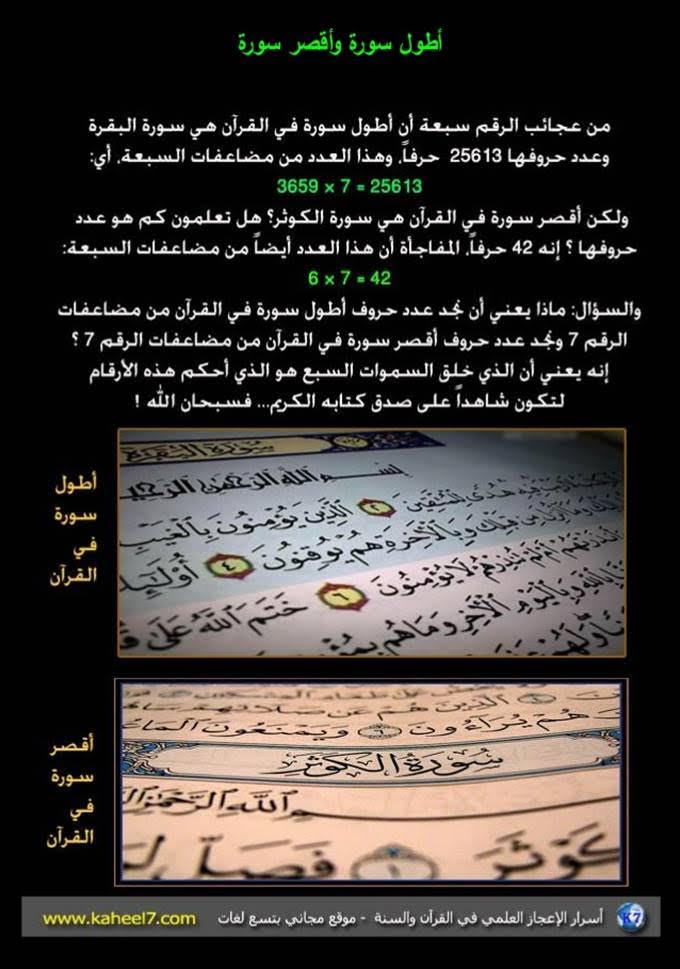 أطول سورة وأقصر سورة
من عجائب الرقم سبعة أن أطول سورة في القرآن هي سورة البقرة
وعدد حروفها 25613 حرفاً، وهذا العدد من مضاعفات السبعة، أي:
3659 × 7 = 25613
ولكن أقصر سورة في القرآن هي سورة الكوثر؟ هل تعلمون كم هو عدد
حروفها ؟ إنه 42 حرفاً، المفاجأة أن هذا العدد أيضاً من مضاعفات السبعة:
6 × 7 = 42
والسؤال: ماذا يعني أن نجد عدد حروف أطول سورة في القرآن من مضاعفات
الرقم 7 ونجد عدد حروف أقصر سورة في القرآن من مضاعفات الرقم 7 ؟
إنه يعني أن الذي خلق السموات السبع هو الذي أحكم هذه الأرقام
لتكون شاهداً على صدق كتابه الكريم... فسبحان الله !
أطول
سورة
في
القرآن
سورة البقرة
بسم الله الرحمن الرحيم
هُدًى لِلْمُتَّقِينَ ٢ الَّذِينَ يُؤْمِنُونَ بِالْغَيْبِ
وَبِالْآخِرَةِ هُمْ يُوقِنُونَ ٤ أُولَٰئِكَ
لَا يُؤْمِنُونَ ٦ خَتَمَ اللَّهُ عَلَى
وَبِالْيَوْمِ الْآخِرِ وَمَا هُمْ
أقصر
سورة
في
القرآن
الَّذِينَ هُمْ عَنْ صَلَاتِهِمْ
هُمْ يُرَاءُونَ ٦ وَيَمْنَعُونَ
سُورَةُ الْكَوْثَرِ
اللَّهِ الرَّحْمَٰنِ
كَوْثَرَ ١ فَصَلِّ
أسرار الإعجاز العلمي في القرآن والسنة - موقع مجاني بتسع لغات www.kaheel7.com
K7